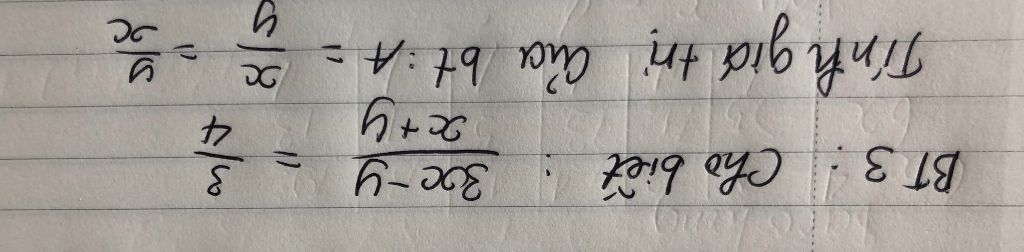 BT 3 : Cho biết : \frac{3x-y}{x+y} = \frac{3}{4}
Tính giá trị của bt : A = \frac{x}{y} = \frac{y}{x}